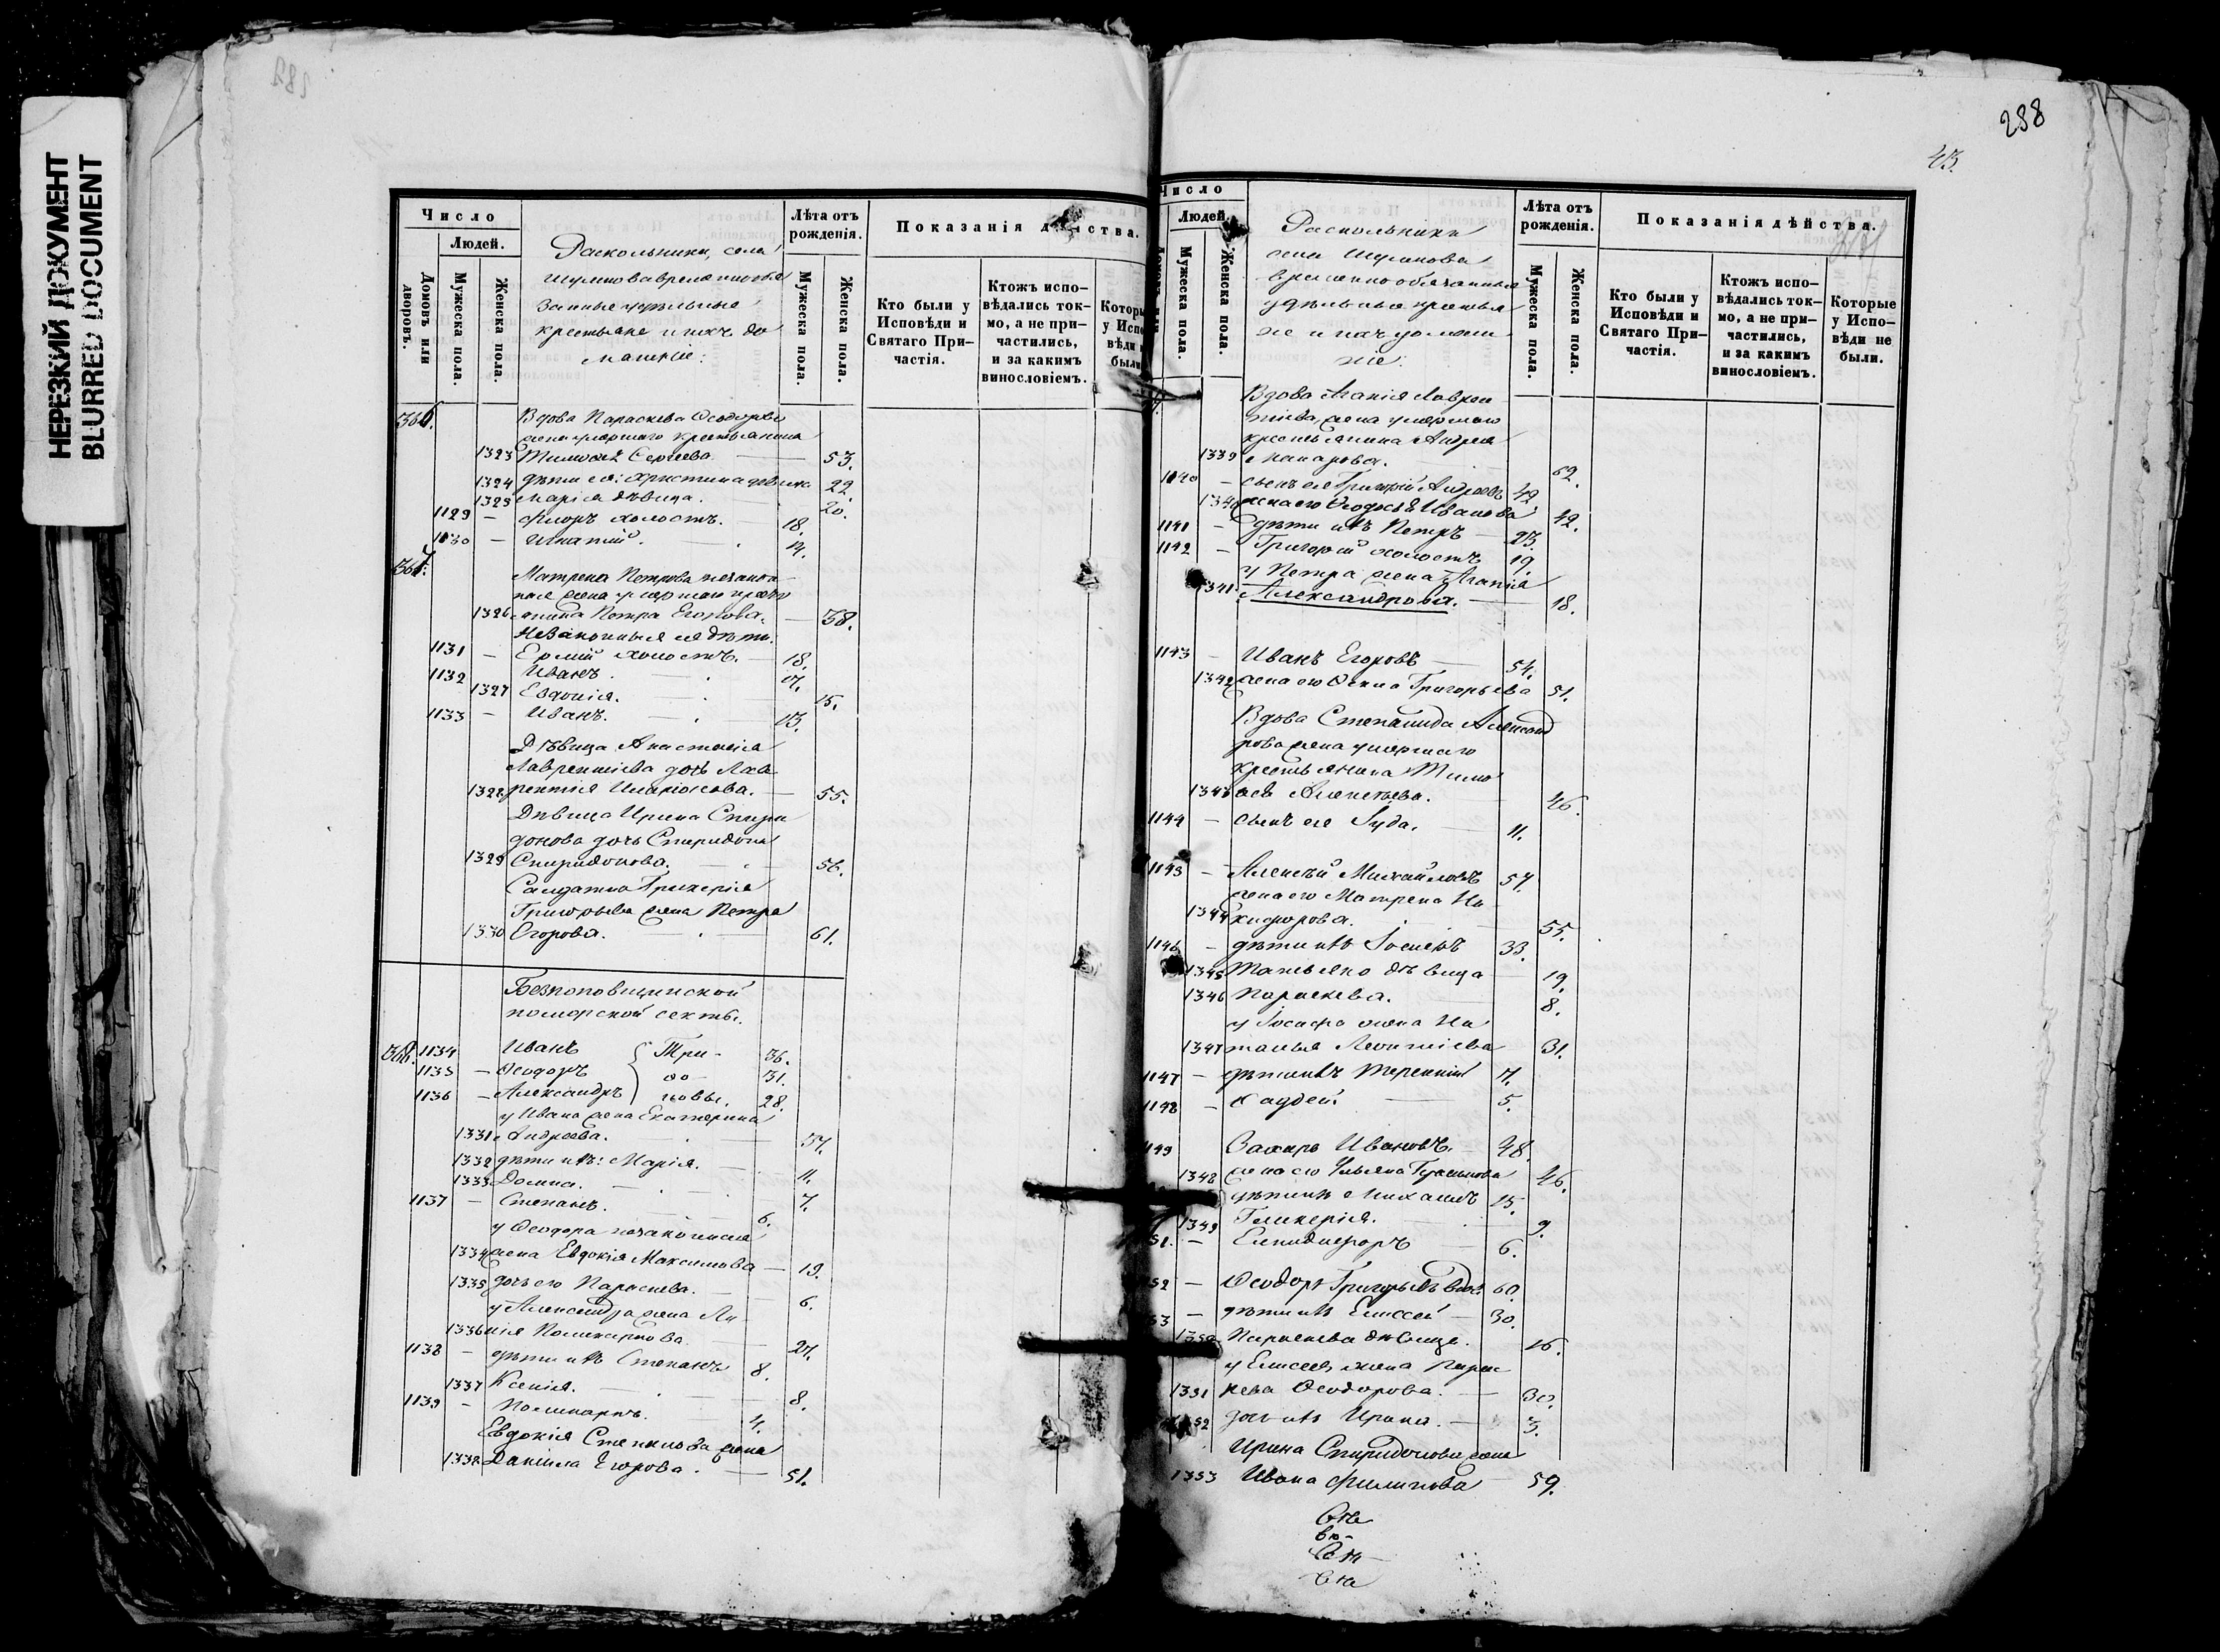 НЕРЕЗКИЙ ДОКУМЕНТ
BLURRED DOCUMENT
287
Число
Людей.
Домовъ или дворовъ.
Мужеска пола.
Женска пола.
Раскольники, села
Шумова временнообя
занные удѣльные
крестьяне и ихъ до
машніе:
Лѣта отъ рожденія.
Мужеска пола.
Женска пола.
Показанія дѣйства.
Кто были у Исповѣди и Святаго Причастія.
Ктожъ исповѣдались токмо, а не причастились, и за какимъ винословіемъ.
366. Вдова Параскева Ѳеодорова
жена умершаго крестьянина
1323 Тимоѳея Сергѣева. 53.
1324 дѣти ея: Христина дѣвица 22.
1325 Марія дѣвица. 20.
1129 – Флоръ холостъ. 18.
1130 – Игнатій. 14.
367. Матрена Петрова незакон
ная жена умершаго крест
1326 янина Петра Егорова. 38.
Незаконныя ея дѣти.
1131 – Ермій холостъ. 18.
1132 Иванъ. 17.
1327 Евдокія. 15.
1133 – Иванъ. 13.
Дѣвица Анастасія
Лаврентіева дочь Лав
1328 рентія Иларіонова. 55.
Дѣвица Ирина Спири
донова дочь Спиридона
1329 Спиридонова. 56.
Салдатка Гликерія
Григорьева жена Петра
1330 Егорова. 61.
Безпоповщинской
поморской секты.
368. 1134 Иванъ { Три- 36.
1135 – Ѳеодоръ фо- 31.
1136 – Александръ новы. 28.
у Ивана жена Екатерина
1331 Андреева. 37.
1332 дѣти ихъ: Марія. 11.
1333 Домна. 7.
1137 – Степанъ. 6.
у Ѳеодора незаконная
1334 жена Евдокія Максимова 19.
1335 дочь его Параскева. 6.
у Александра жена Ли
1336 дія Поликарпова 27.
1138 – дѣти ихъ Степанъ 8.
1337 Ксенія. 8.
1139 – Поликарпъ. 4.
Евдокія Степанова жена
1338 Даніила Егорова. 51.
288
43.
Число
Людей.
Мужеска пола.
Женска пола.
Раскольники
села Шумова
временнообязанные
удѣльные крестья
не и ихъ домаш
ніе:
Лѣта отъ рожденія.
Мужеска пола.
Женска пола.
Показанія дѣйства.
Кто были у Исповѣди и Святаго Причастія.
Ктожъ исповѣдались токмо, а не причастились, и за какимъ винословіемъ.
Которые у Исповѣди не были.
Вдова Агапія Лаврен
тіева, жена умершаго
крестьянина Андрея
1339 Макарова. 62.
1140 – сынъ ея Григорій Андреевъ 42.
1340 жена его Ѳеодосья Иванова 42.
1141 – дѣти ихъ Петръ 23.
1142 – Григорій холостъ 19.
у Петра жена Агапія
1341 Александрова. 18.
1143 – Иванъ Егоровъ 54.
1342 жена его Ѳекла Григорьева 51.
Вдова Степанида Александ
рова жена умершаго
крестьянина Тимо
1343 ѳея Алексѣева. 46.
1144 – сынъ ея Іуда. 11.
1145 – Алексѣй Михайловъ 57.
жена его Матрена Ни
1344 кифорова. 55.
1146 – дѣти ихъ Іосифъ 33.
1345 Татьяна дѣвица 19.
1346 Параскева. 8.
у Іосифа жена На
1347 талья Леонтіева 31.
1147 – дѣти ихъ Терентій 7.
1148 – Фаддей. 5.
1149 Захаръ Ивановъ. 48.
1348 жена его Ульяна 46.
дѣти ихъ Михаилъ 15.
1349 Гликерія. 9.
51. – Елпидифоръ 6.
52 – Ѳеодоръ Григорьевъ вдов. 60.
53 – дѣти ихъ Елиссей 30.
1350 Параскева дѣвица. 16.
у Елисея жена Парас
1351 кева Ѳеодорова. 30.
1352 дочь ихъ Ирина. 3.
Ирина Спиридонова жена
1353 Ивана Филипова 59.